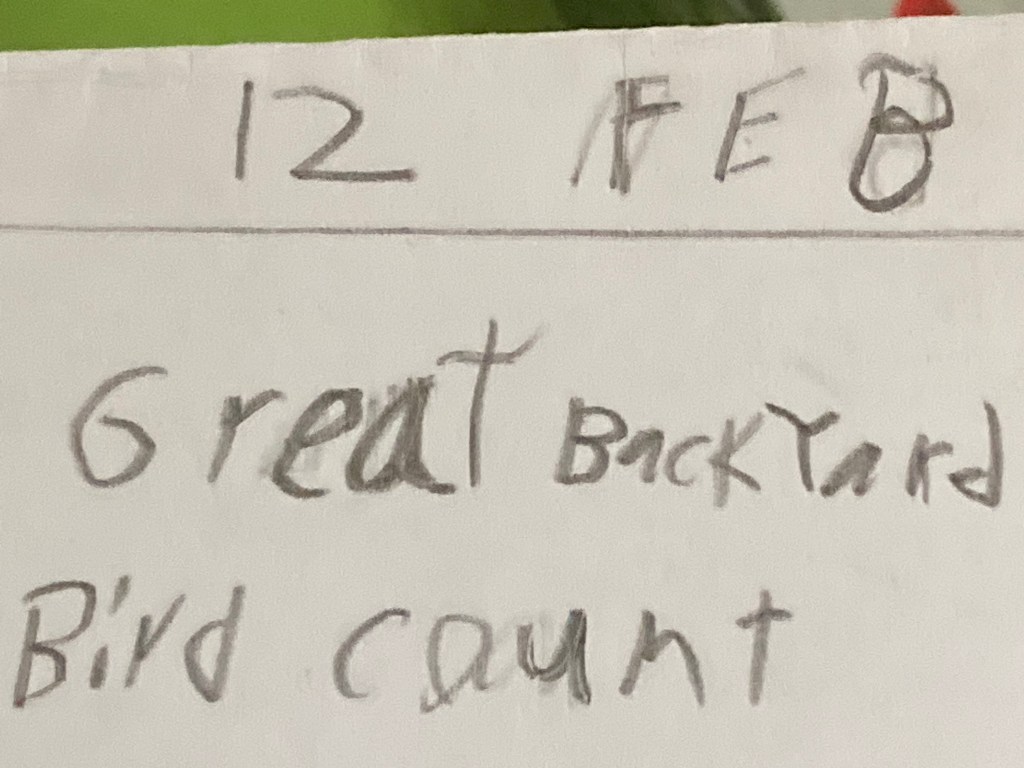 12 FEB
Great BackYard
Bird count